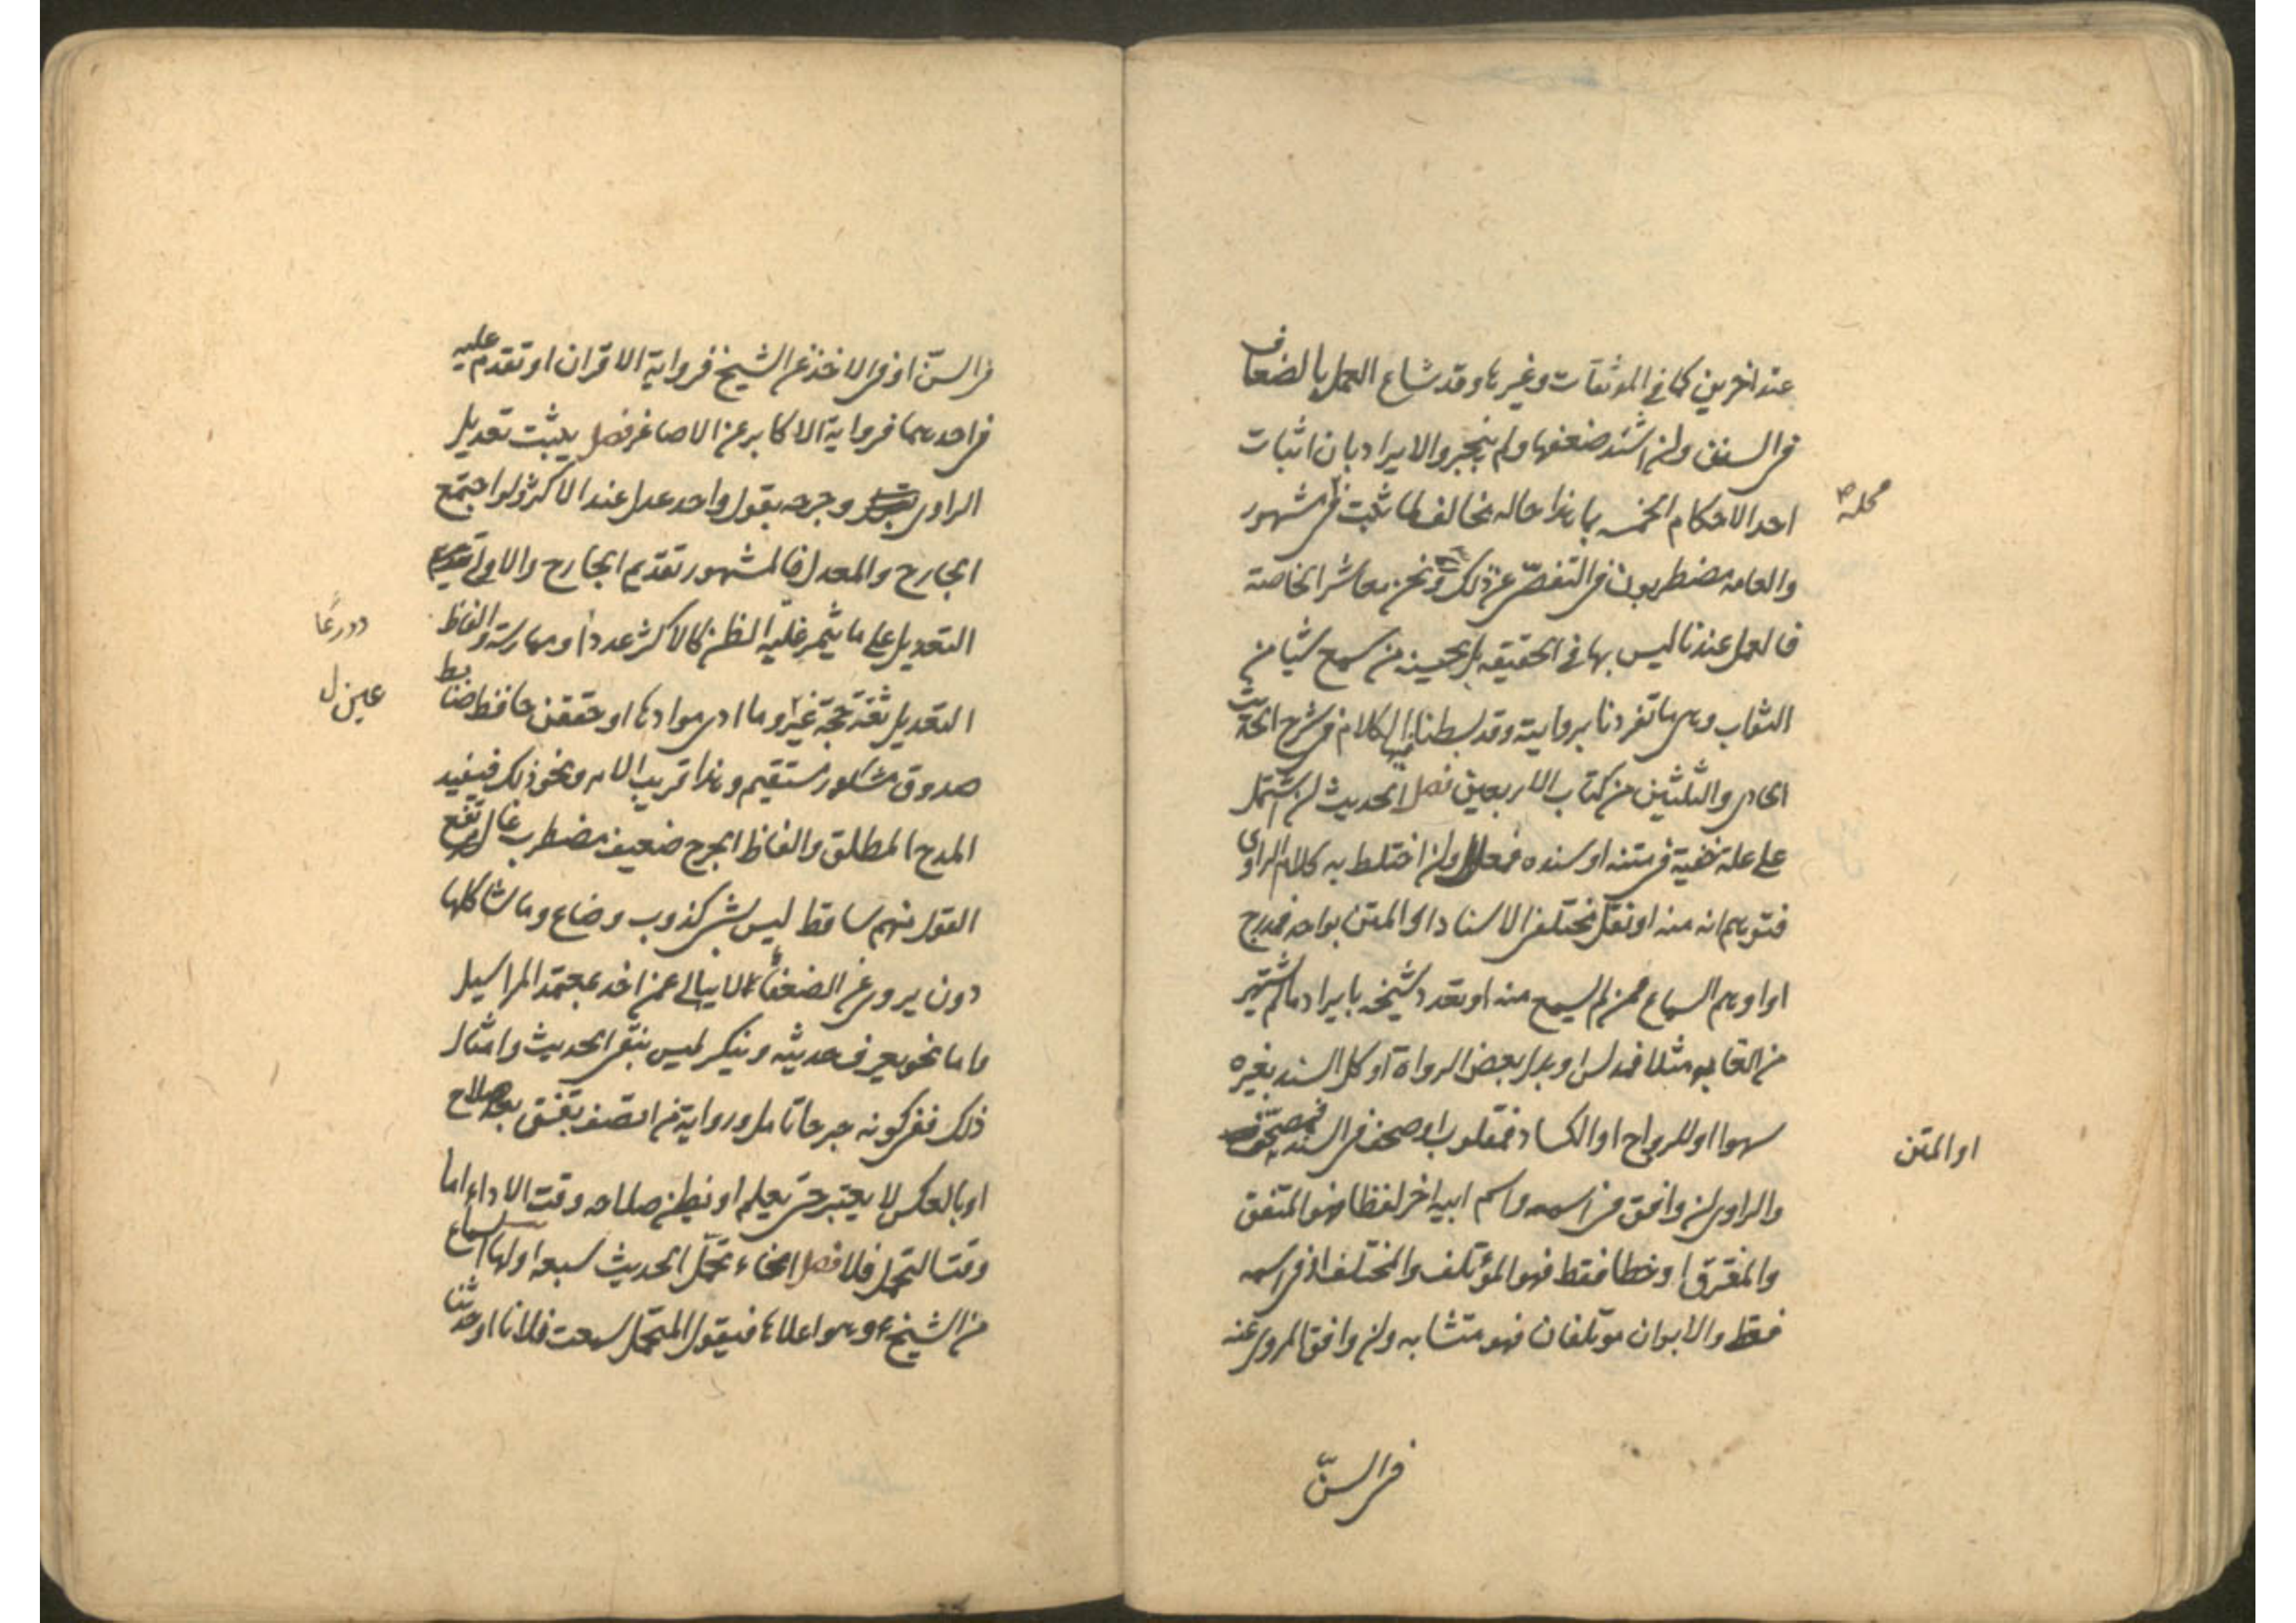 عند اخرين كما في الموثقات وغيرها وقد شاع العمل بالضعاف
في السنن وان اشتد ضعفها ولم ينجبر والايراد بان اثبات
احد الاحكام الخمسه بما هذا حاله مخالف لما ثبت في مشهور
محله
والعامه مضطربون في التفصي عن ذلك ونحن معاشر الخاصة
فالعمل عندنا ليس بها في الحقيقه بل بحسنه من سمع شيئا من
الثواب وهي ما تفردنا بروايته وقد بسطنا فيها الكلام في شرح الحديث
الحادي والثلثين من كتاب الاربعين فصل الحديث ان اشتمل
على علة خفية في متنه او سنده فمعلل وان اختلط به كلام الراوي
فتوهم انه منه او نقل مختلفي الاسناد او المتن بواحد فمدرج
او اوهم السماع ممن لم يسمع منه او تعدد شيخه بايراد ما لم يشتهر
من القابه مثلا فمدلس او بدل بعض الرواة او كل السند بغيره
سهوا او للرواج او الكساد فمقلوب او صحف في السند فمصحف
او المتن
والراوي ان وافق في اسمه واسم ابيه اخر لفظا فهو المتفق
والمفترق او خطا فقط فهو المؤتلف والمختلف او في اسمه
فقط والابوان موتلفان فهو متشابه وان وافق المروي عنه
في السنّ
في السنّ او في الاخذ عن الشيخ فرواية الاقران او تقدم عليه
في احدهما فرواية الاكابر عن الاصاغر فصل يثبت تعديل
الراوي وجرحه بقول واحد عدل عند الاكثر ولو اجتمع
الجارح والمعدل فالمشهور تقديم الجارح والاولى
التعديل على ما يثمر غلبة الظن كالاكثر عددا وممارسة والفاظ
وورعا
التعديل ثقة حجة وما ادى موادها او متقن حافظ ضابط
عين
صدوق مشكور مستقيم وهذا قريب الامر ونحو ذلك فيفيد
المدح المطلق والفاظ الجرح ضعيف مضطرب غال مرتفع
القول متهم ساقط ليس بشي كذوب وضاع وما شاكلها
دون يروي عن الضعفاء لا يبالي عمن اخذ يعتمد المراسيل
واما نحو يعرف حديثه وينكر ليس بنقي الحديث وامثال
ذلك ففي كونه جرحا تامل ورواية من اتصف بفسق بعد صلاح
او بالعكس لا يعتبر حتى يعلم او يظن صلاحه وقت الاداء اما
وقت التحمل فلا فصل انحاء تحمل الحديث سبعه اولها السماع
من الشيخ وهو اعلاها فيقول المتحمل سمعت فلانا او حدثنا